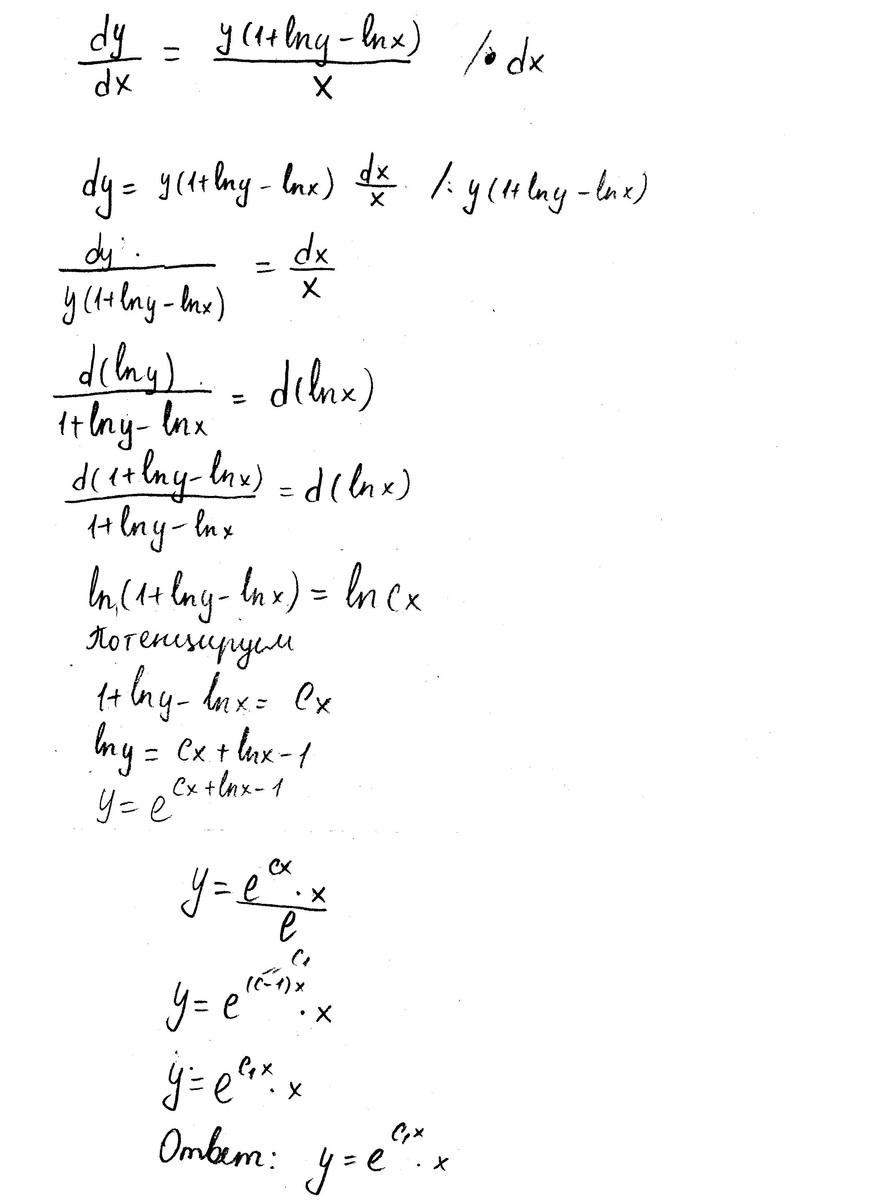 dy/dx = y(1+lny-lnx)/x /• dx
dy = y(1+lny-lnx) dx/x /: y(1+lny-lnx)
dy/(y(1+lny-lnx)) = dx/x
d(lny)/(1+lny-lnx) = d(lnx)
d(1+lny-lnx)/(1+lny-lnx) = d(lnx)
ln(1+lny-lnx) = ln Cx
Потенцируем
1+lny-lnx = Cx
lny = Cx+lnx-1
y = e^(Cx+lnx-1)
y = (e^(Cx) · x)/e
y = e^((C-1)x) · x C₁
y = e^(C₁x) · x
Ответ: y = e^(C₁x) · x